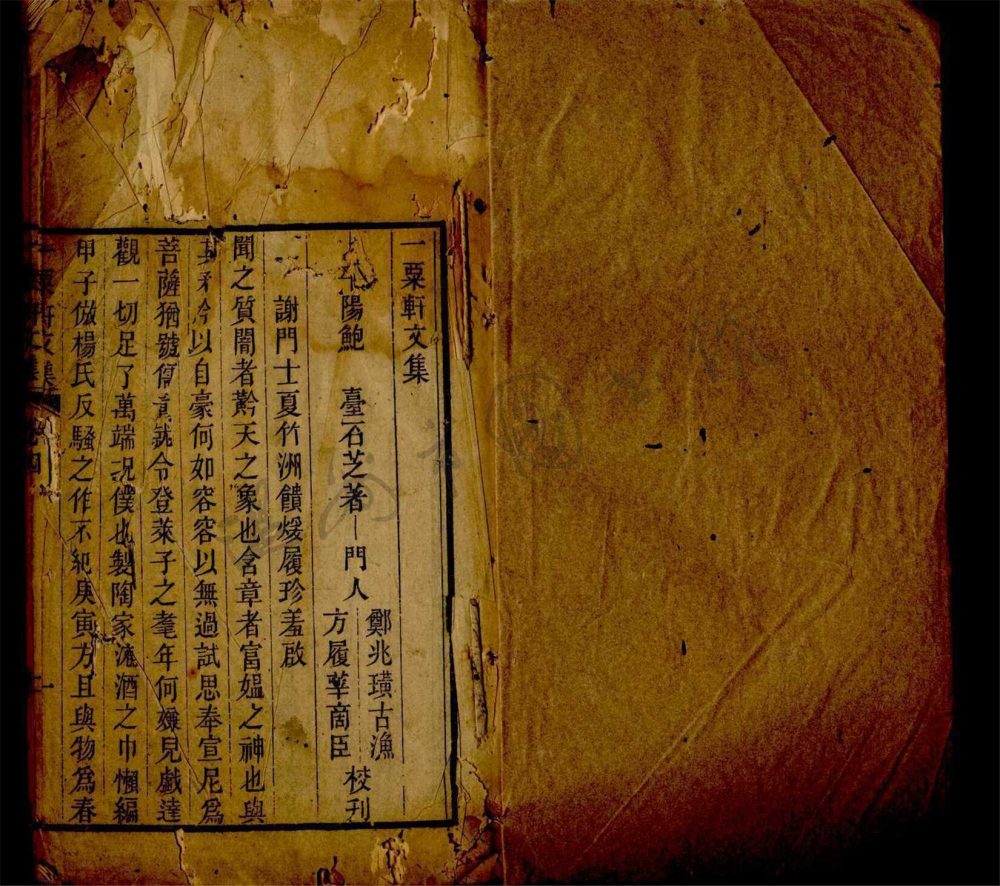 一粟軒文集
陽鮑　臺石芝著　門人
鄭兆璜古漁
方履莘商臣
校刊
謝門士夏竹洲饋煖履珍羞啟
聞之質闇者黔天之象也含章者富媼之神也與
其矛今以自豪何如容容以無過試思奉宣尼為
菩薩猶號儒令登萊子之耄年何嫌兒戲達
觀一切足了萬端況僕也製陶家漉酒之巾懶編
甲子倣楊氏反騷之作不紀庚寅方且與物為春